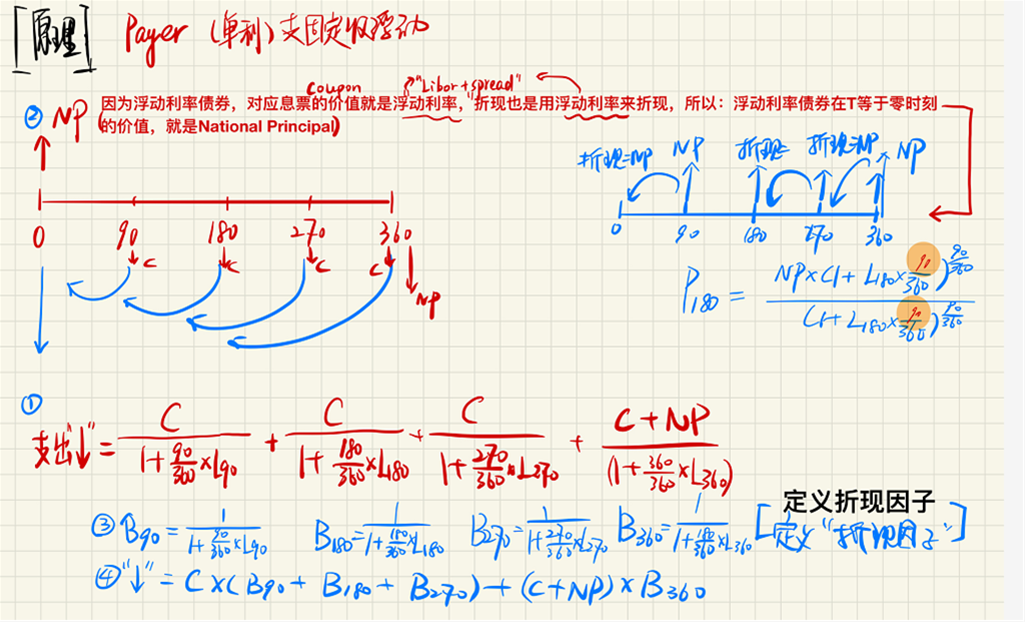 [原理] Payer (单利) 支固定收浮动
coupon "Libor+spread"
② NP 因为浮动利率债券，对应息票的价值就是浮动利率，折现也是用浮动利率来折现，所以：浮动利率债券在T等于零时刻
的价值，就是National Principal)
折现=NP NP 折现= 折现=NP NP
0 90 180 270 360
0 90 180 270 360
C C C C
NP
P180 = NP×(1+L180×90/360)^90/360 / (1+L180×90/360)^90/360
①
支出"↓" = C/(1+90/360×L90) + C/(1+180/360×L180) + C/(1+270/360×L270) + (C+NP)/(1+360/360×L360)
定义折现因子
③ B90=1/(1+90/360×L90) B180=1/(1+180/360×L180) B270=1/(1+270/360×L270) B360=1/(1+180/360×L360) [定义"折现因子"]
④ "↓" = C×(B90+B180+B270)+(C+NP)×B360